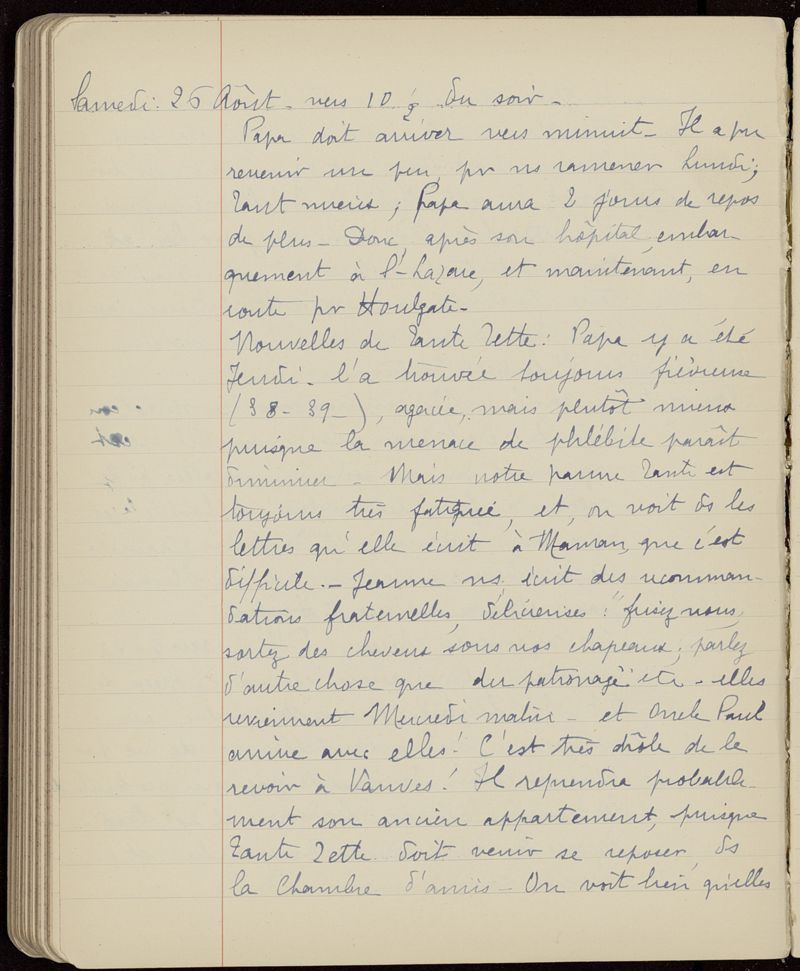 Samedi. 26 Août - vers 10 ½ du soir -
Papa doit arriver vers minuit - Il a pu
revenir un peu, pr ns ramener Lundi;
Tant mieux; Papa aura 2 jours de repos
de plus - Donc, après son hôpital, embar-
quement à St-Lazare, et maintenant, en
route pr Houlgate -
Nouvelles de Tante Zette: Papa y a été
Jeudi - l'a trouvée toujours fièvreuse
(38 - 39 -), agacée, mais plutôt mieux
puisque la menace de phlébite paraît
diminuer - Mais notre pauvre Tante est
toujours très fatiguée, et, on voit ds les
lettres qu'elle écrit à Maman, que c'est
difficile. - Jeanne ns écrit des recomman-
dations fraternelles, délicieuses: "frisez vous,
sortez des cheveux sous vos chapeaux; parlez
d'autre chose que du patronage" etc - elles
reviennent Mercredi matin - et Oncle Paul
arrive avec elles! C'est très drôle de le
revoir à Vanves! Il reprendra probable-
ment son ancien appartement, puisque
Tante Zette doit venir se reposer ds
la chambre d'amis - On voit bien qu'elles